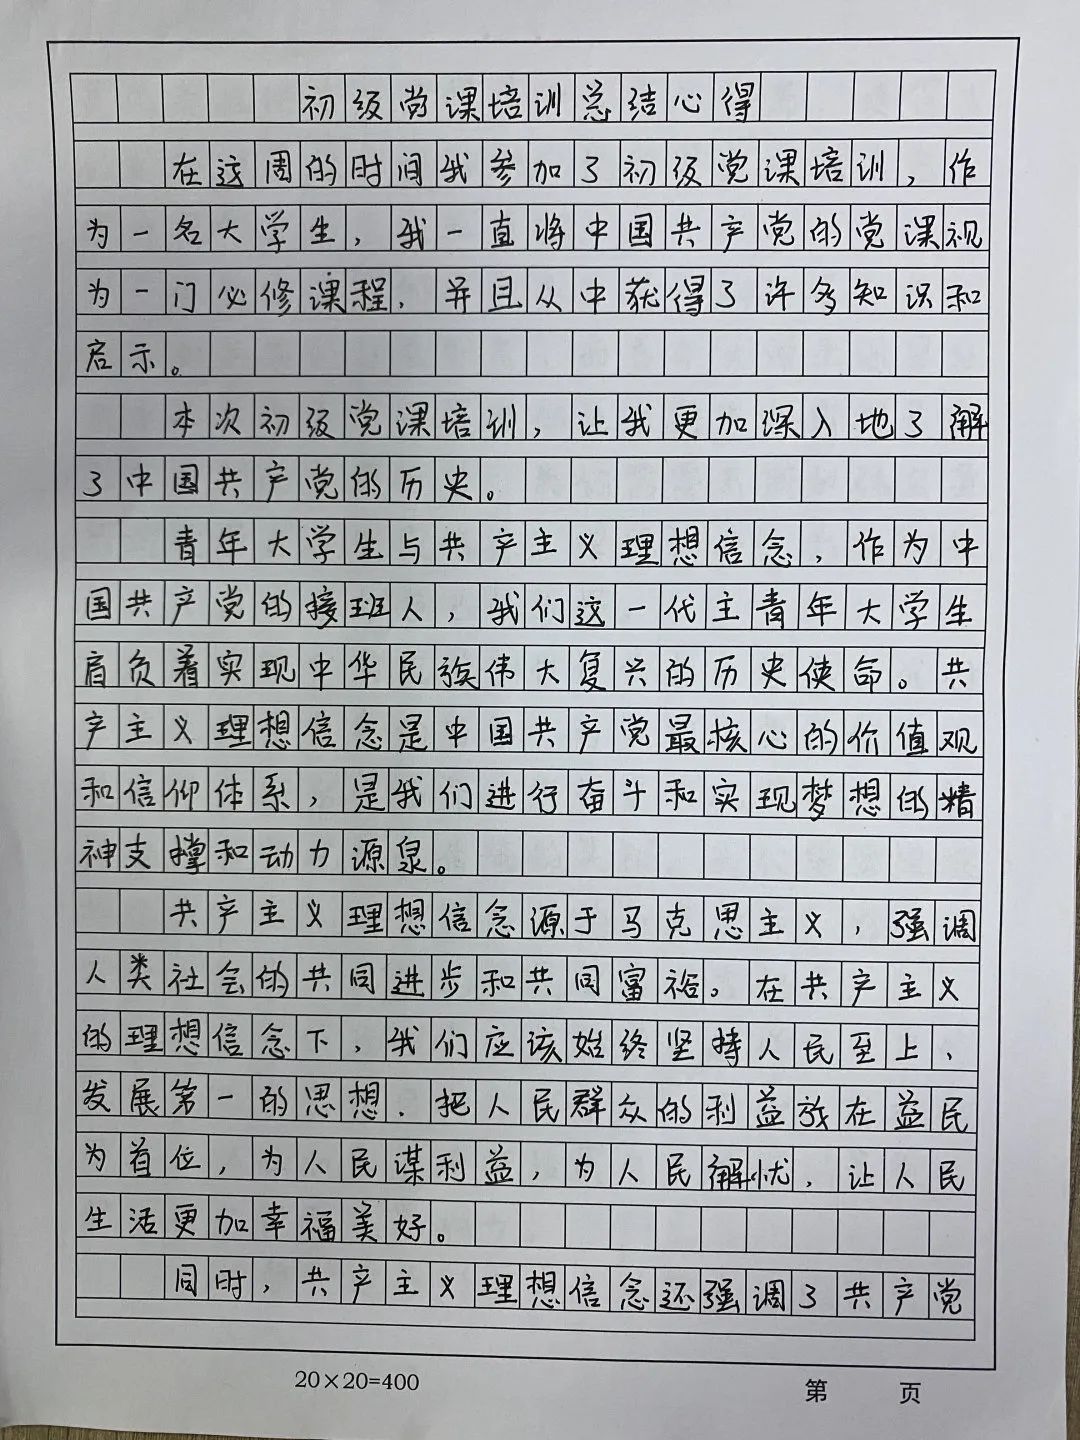 初级党课培训总结心得
在这周的时间我参加了初级党课培训，作
为一名大学生，我一直将中国共产党的党课视
为一门必修课程，并且从中获得了许多知识和
启示。
本次初级党课培训，让我更加深入地了解
了中国共产党的历史。
青年大学生与共产主义理想信念，作为中
国共产党的接班人，我们这一代主青年大学生
肩负着实现中华民族伟大复兴的历史使命。共
产主义理想信念是中国共产党最核心的价值观
和信仰体系，是我们进行奋斗和实现梦想的精
神支撑和动力源泉。
共产主义理想信念源于马克思主义，强调
人类社会的共同进步和共同富裕。在共产主义
的理想信念下，我们应该始终坚持人民至上、
发展第一的思想，把人民群众的利益放在益民
为首位，为人民谋利益，为人民解忧，让人民
生活更加幸福美好。
同时，共产主义理想信念还强调了共产党
20×20=400
第 页